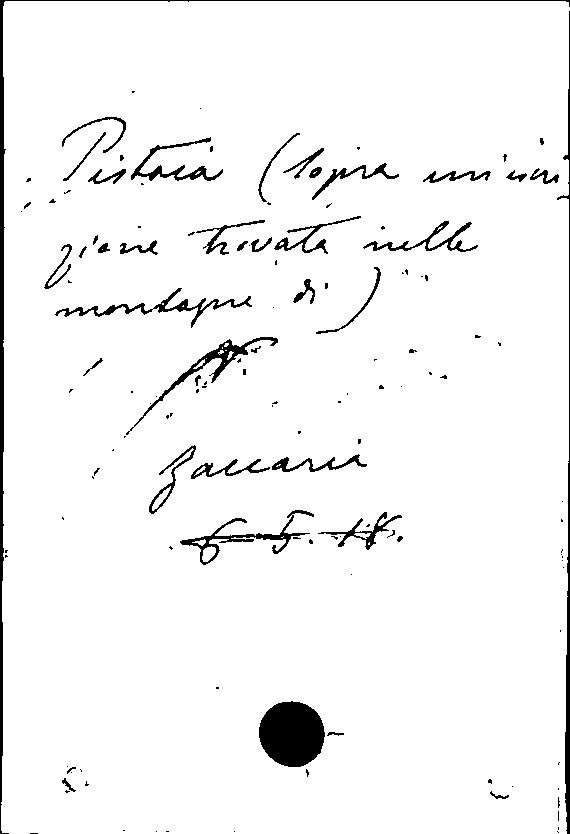 Pistoia (Sopra un'iscri-
zione trovata nelle
montagne di)
Zaccaria
6 5. 18.